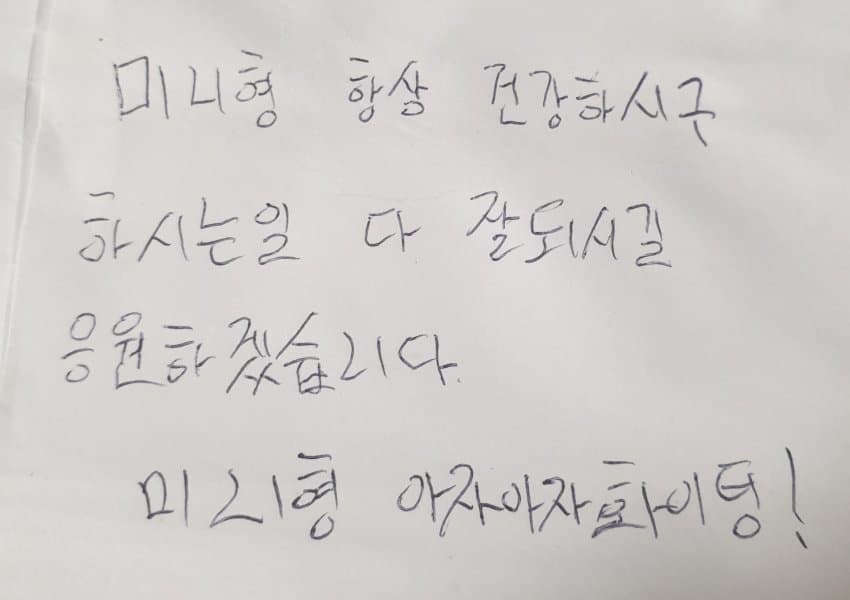 미니형 항상 건강하시구
하시는일 다 잘되시길
응원하겠습니다.
미니형 아자아자화이팅!